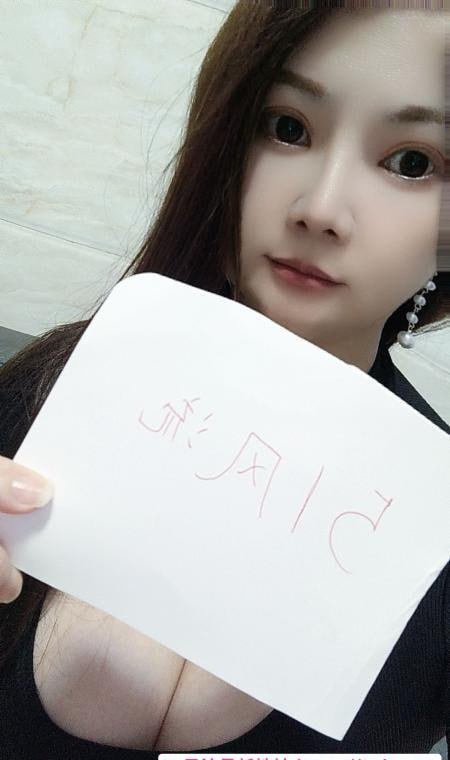 51风流